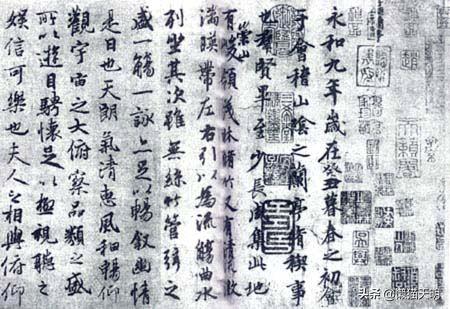 永和九年歲在癸丑暮春之初會
于會稽山陰之蘭亭脩稧事
也羣賢畢至少長咸集此地
有崇山峻領茂林脩竹又有清流激
湍暎帶左右引以為流觴曲水
列坐其次雖無絲竹管弦之
盛一觴一詠亦足以暢叙幽情
是日也天朗氣清惠風和暢仰
觀宇宙之大俯察品類之盛
所以遊目騁懷足以極視聽之
娛信可樂也夫人之相與俯仰
头条 @懒猫天明